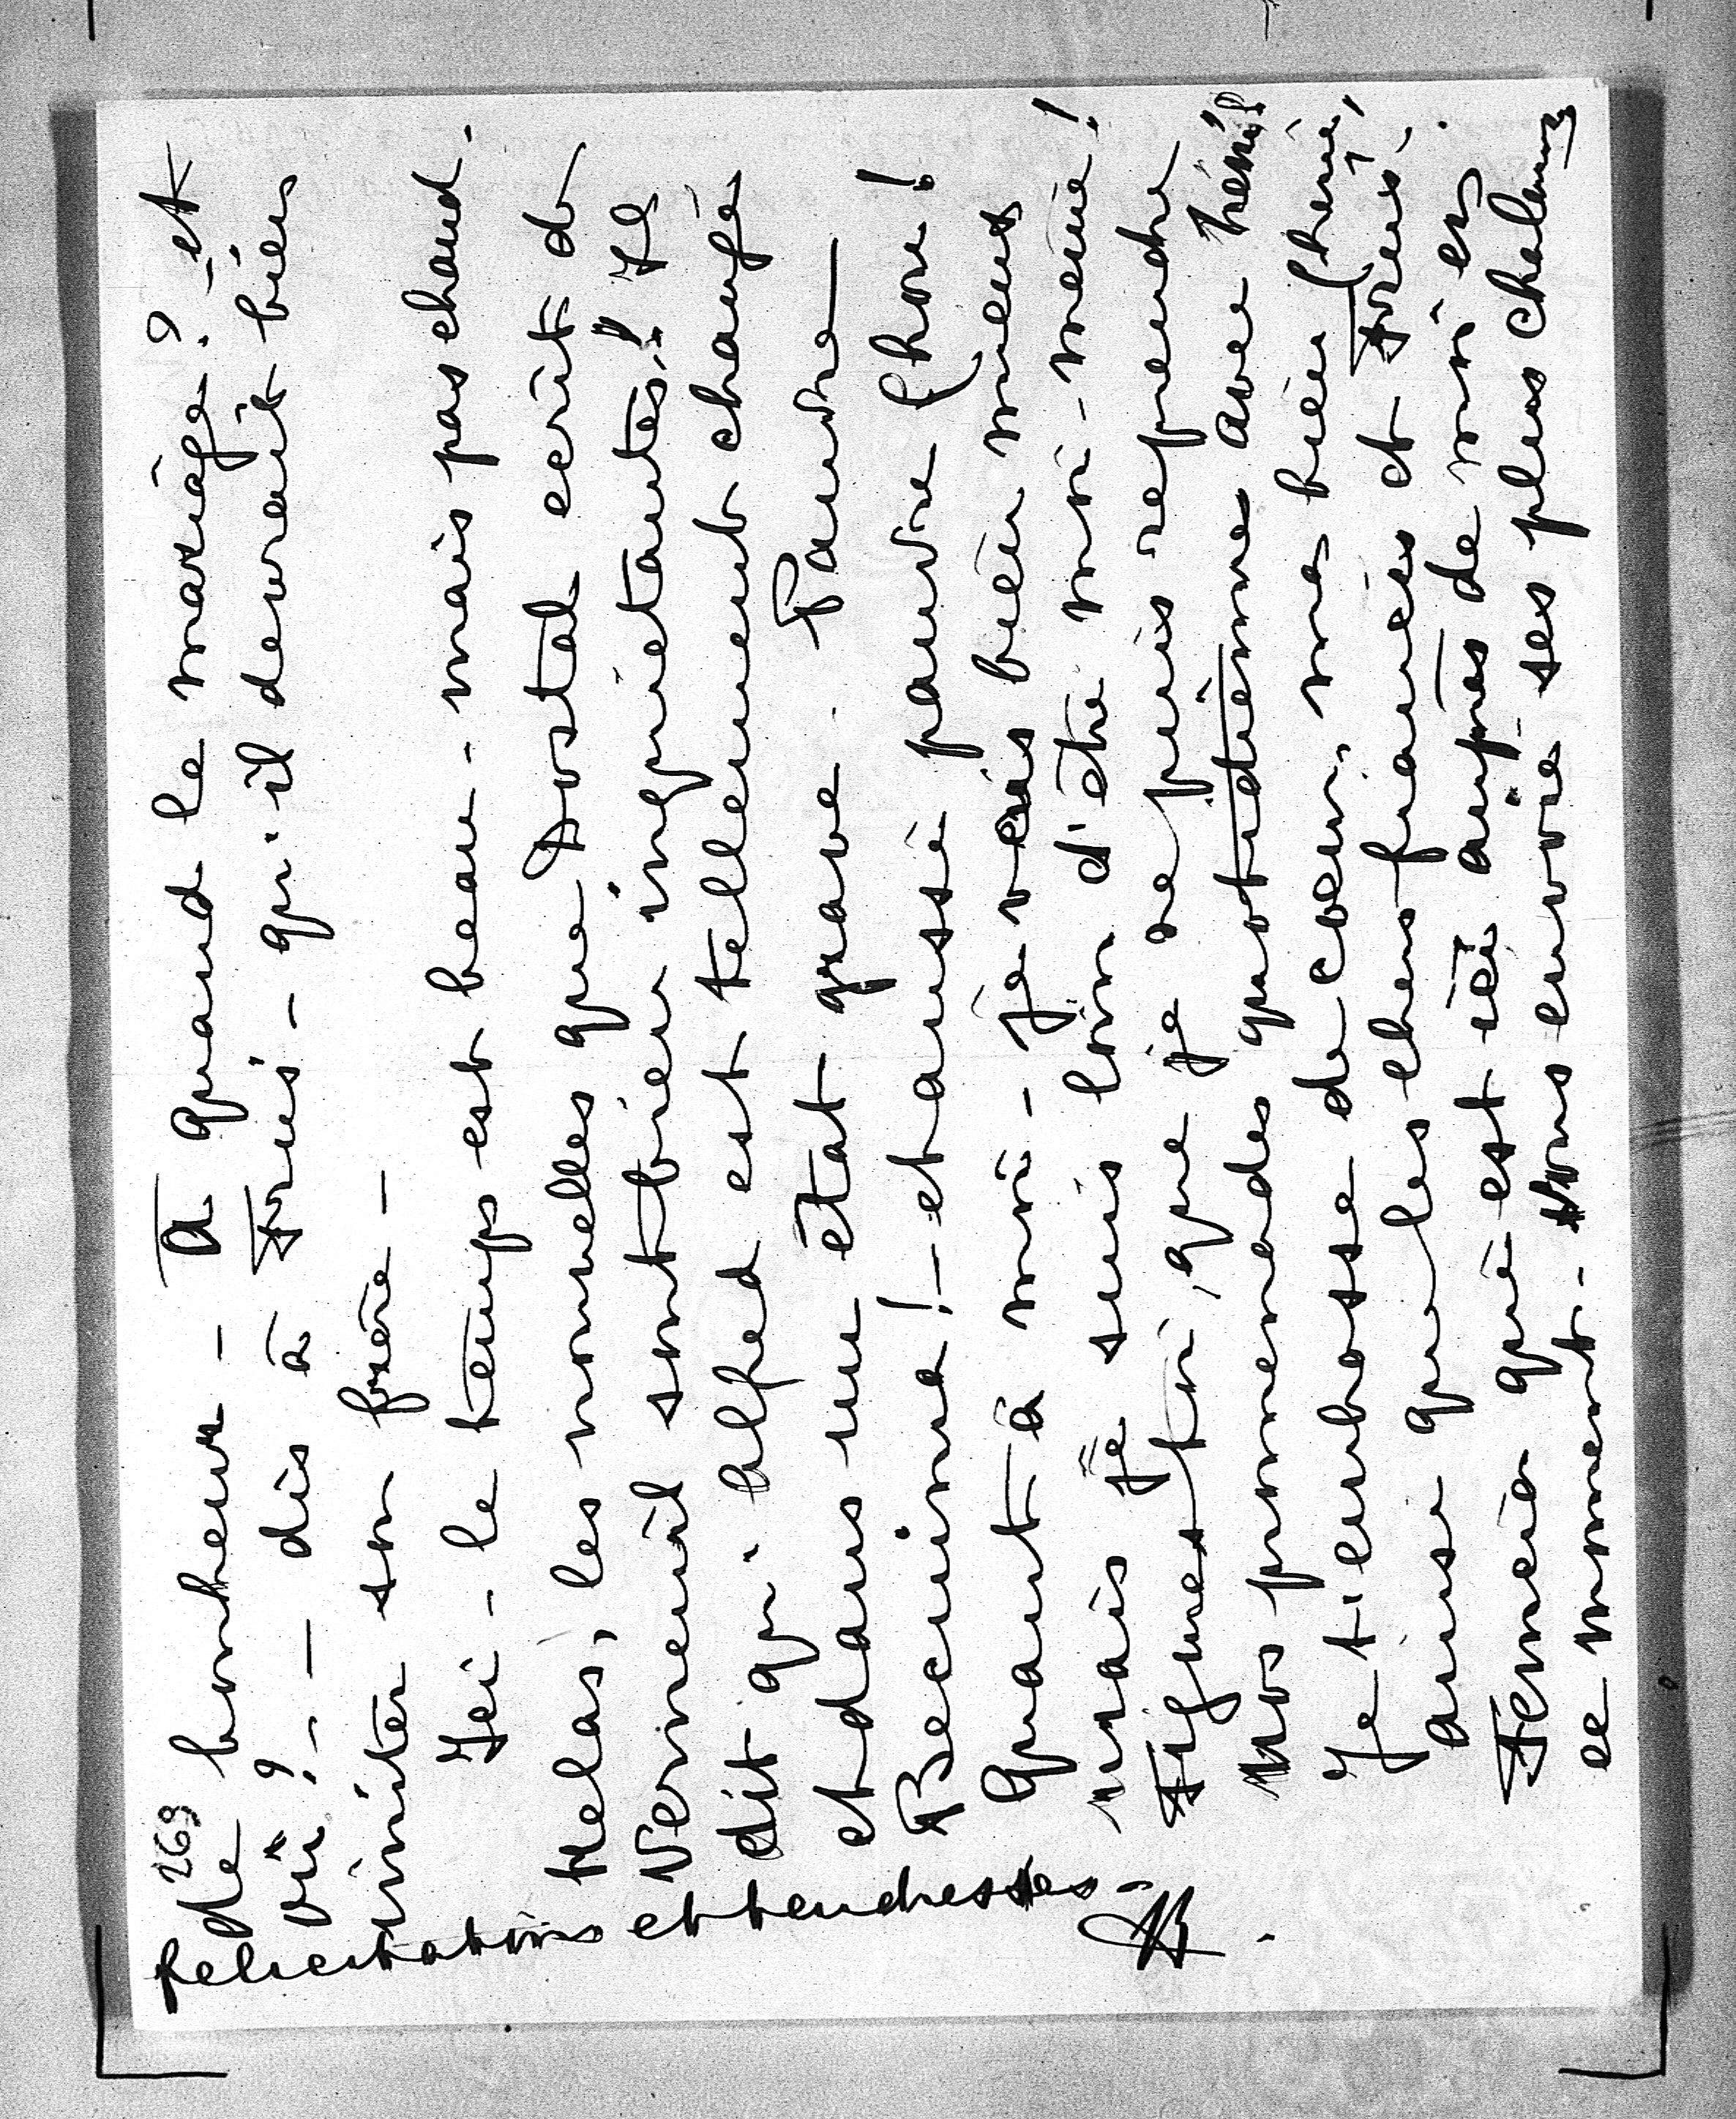 269
de bonheur – A quand le mariage? – et
où? – – dis à Toни – qu'il devrait bien
imiter son frère –
Ici – le temps est beau – mais pas chaud.
Helas, les nouvelles que Dostal ecrit de
Verneuil sont bien inquietantes!! Il
dit qu'Alfred est tellement changé
et dans un état grave. Pauvre
Becuma! – et aussi pauvre Chou!
Quant à moi – je vais bien mieux
mais je suis loin d'être moi-même!
Figures toi, que je ne puis reprendre
nos promenades quotidiennes avec
Je t'embrasse de coeur, ma bien chérie,
ainsi que les chers fiancés et
Fenia qui est ici auprès de moi en
ce moment – vous envoie ses plus chaleurs
felicitations et tendresses –